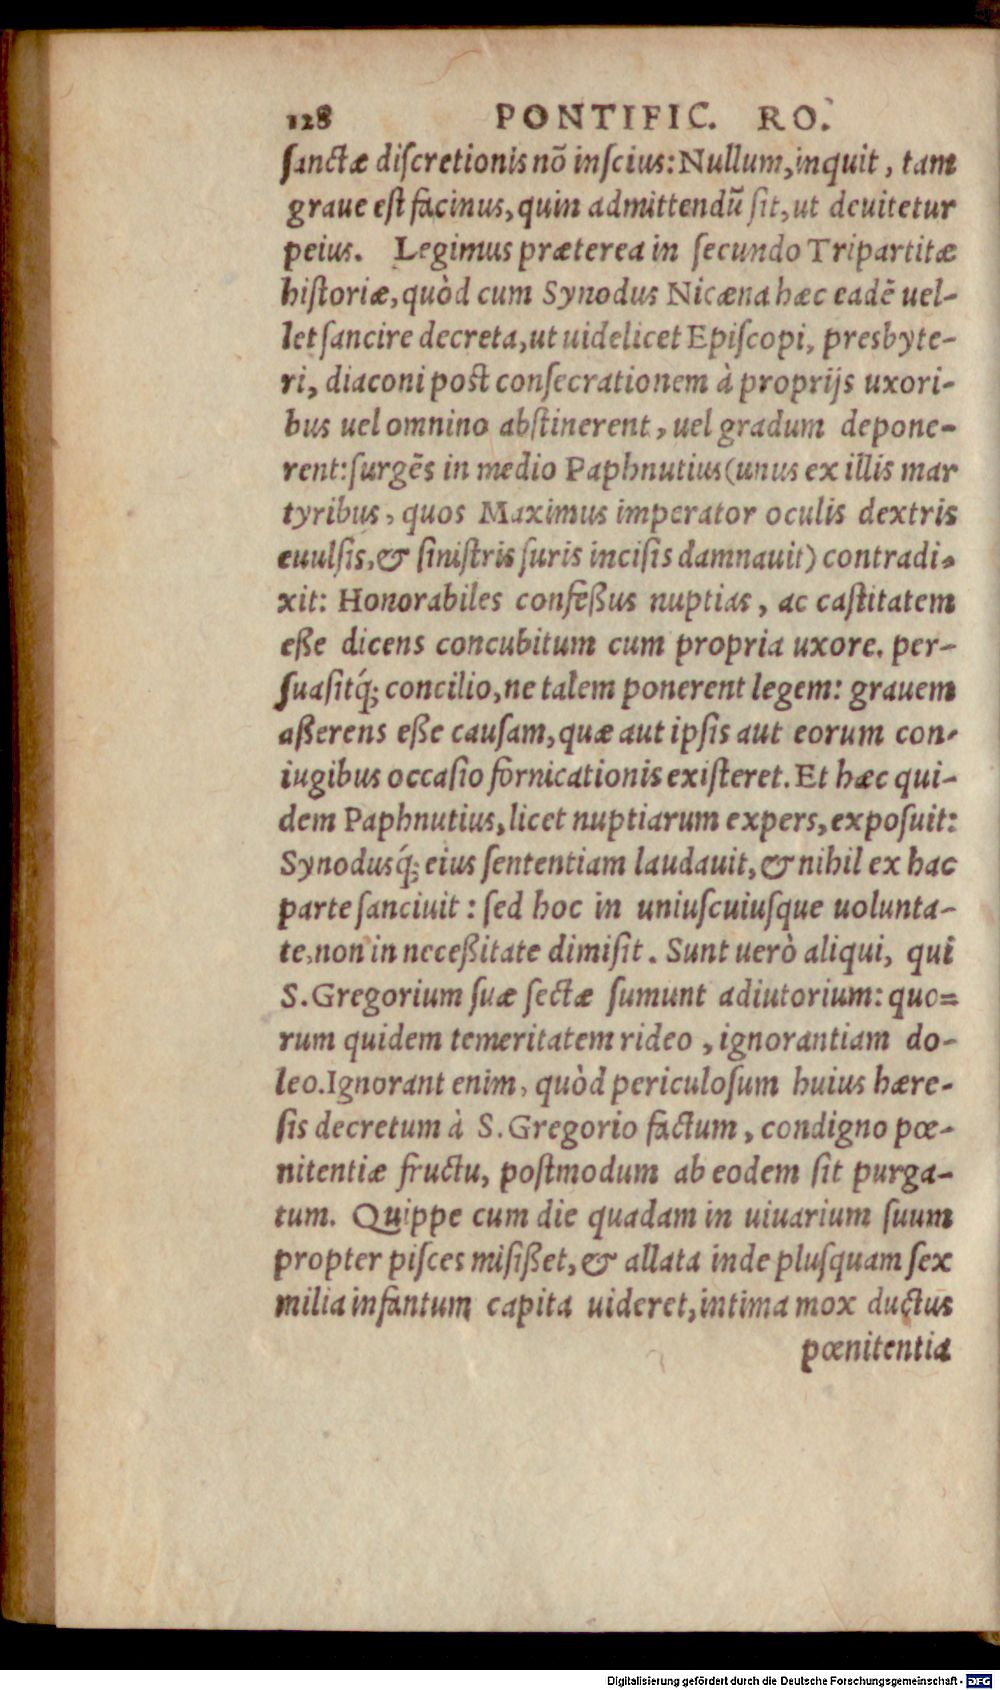 128 PONTIFIC. RO.
ſanctæ diſcretionis nō inſcius: Nullum, inquit, tam
graue eſt facinus, quin admittendū ſit, ut deuitetur
peius. Legimus præterea in ſecundo Tripartitæ
hiſtoriæ, quòd cum Synodus Nicæna hæc eadē uel-
let ſancire decreta, ut uidelicet Epiſcopi, presbyte-
ri, diaconi poſt conſecrationem à proprijs uxori-
bus uel omnino abſtinerent, uel gradum depone-
rent: ſurgēs in medio Paphnutius (unus ex illis mar
tyribus, quos Maximus imperator oculis dextris
euulſis, & ſiniſtris ſuris inciſis damnauit) contradi-
xit: Honorabiles confeßus nuptias, ac caſtitatem
eße dicens concubitum cum propria uxore. per-
ſuaſitq́; concilio, ne talem ponerent legem: grauem
aßerens eße cauſam, quæ aut ipſis aut eorum con-
iugibus occaſio fornicationis exiſteret. Et hæc qui-
dem Paphnutius, licet nuptiarum expers, expoſuit:
Synodusq́; eius ſententiam laudauit, & nihil ex hac
parte ſanciuit: ſed hoc in uniuſcuiuſque uolunta-
te, non in neceßitate dimiſit. Sunt uerò aliqui, qui
S. Gregorium ſuæ ſectæ ſumunt adiutorium: quo=
rum quidem temeritatem rideo, ignorantiam do-
leo. Ignorant enim, quòd periculoſum huius hære-
ſis decretum à S. Gregorio factum, condigno pœ-
nitentiæ fructu, poſtmodum ab eodem ſit purga-
tum. Quippe cum die quadam in uiuarium ſuum
propter piſces miſißet, & allata inde pluſquam ſex
milia infantum capita uideret, intima mox ductus
pœnitentia
Digitalisierung gefördert durch die Deutsche Forschungsgemeinschaft - DFG